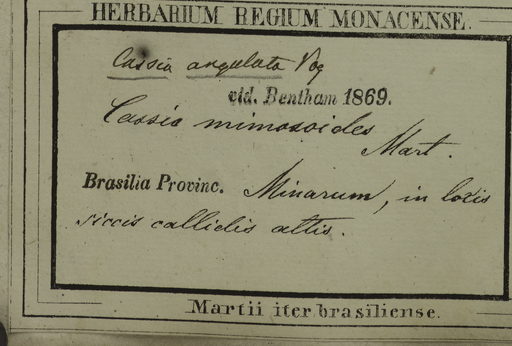 HERBARIUM REGIUM MONACENSE.
Cassia angulata Vog
vid. Bentham 1869.
Cassia mimosoides
Mart.
Brasilia Provinc. Minarum, in locis
siccis callidis altis.
Martii iter brasiliense.